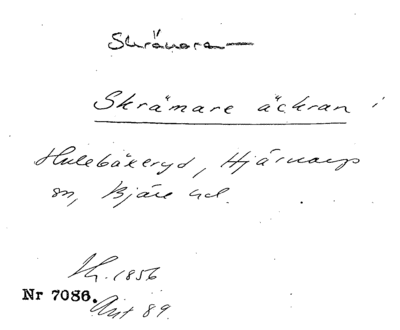 Skränara—
Skrämare äckran i
Hulebäkeryd, Hjärnarps
sn, Bjäre hd.
Sk. 1856
Nr 7086.
Ant 89.